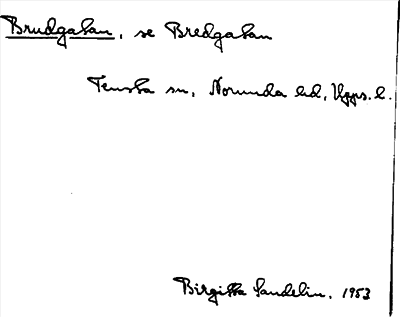 Brudgatan, se Bredgatan
Tensta sn, Norunda hd, Upps. l.
Birgitta Sandelin. 1953